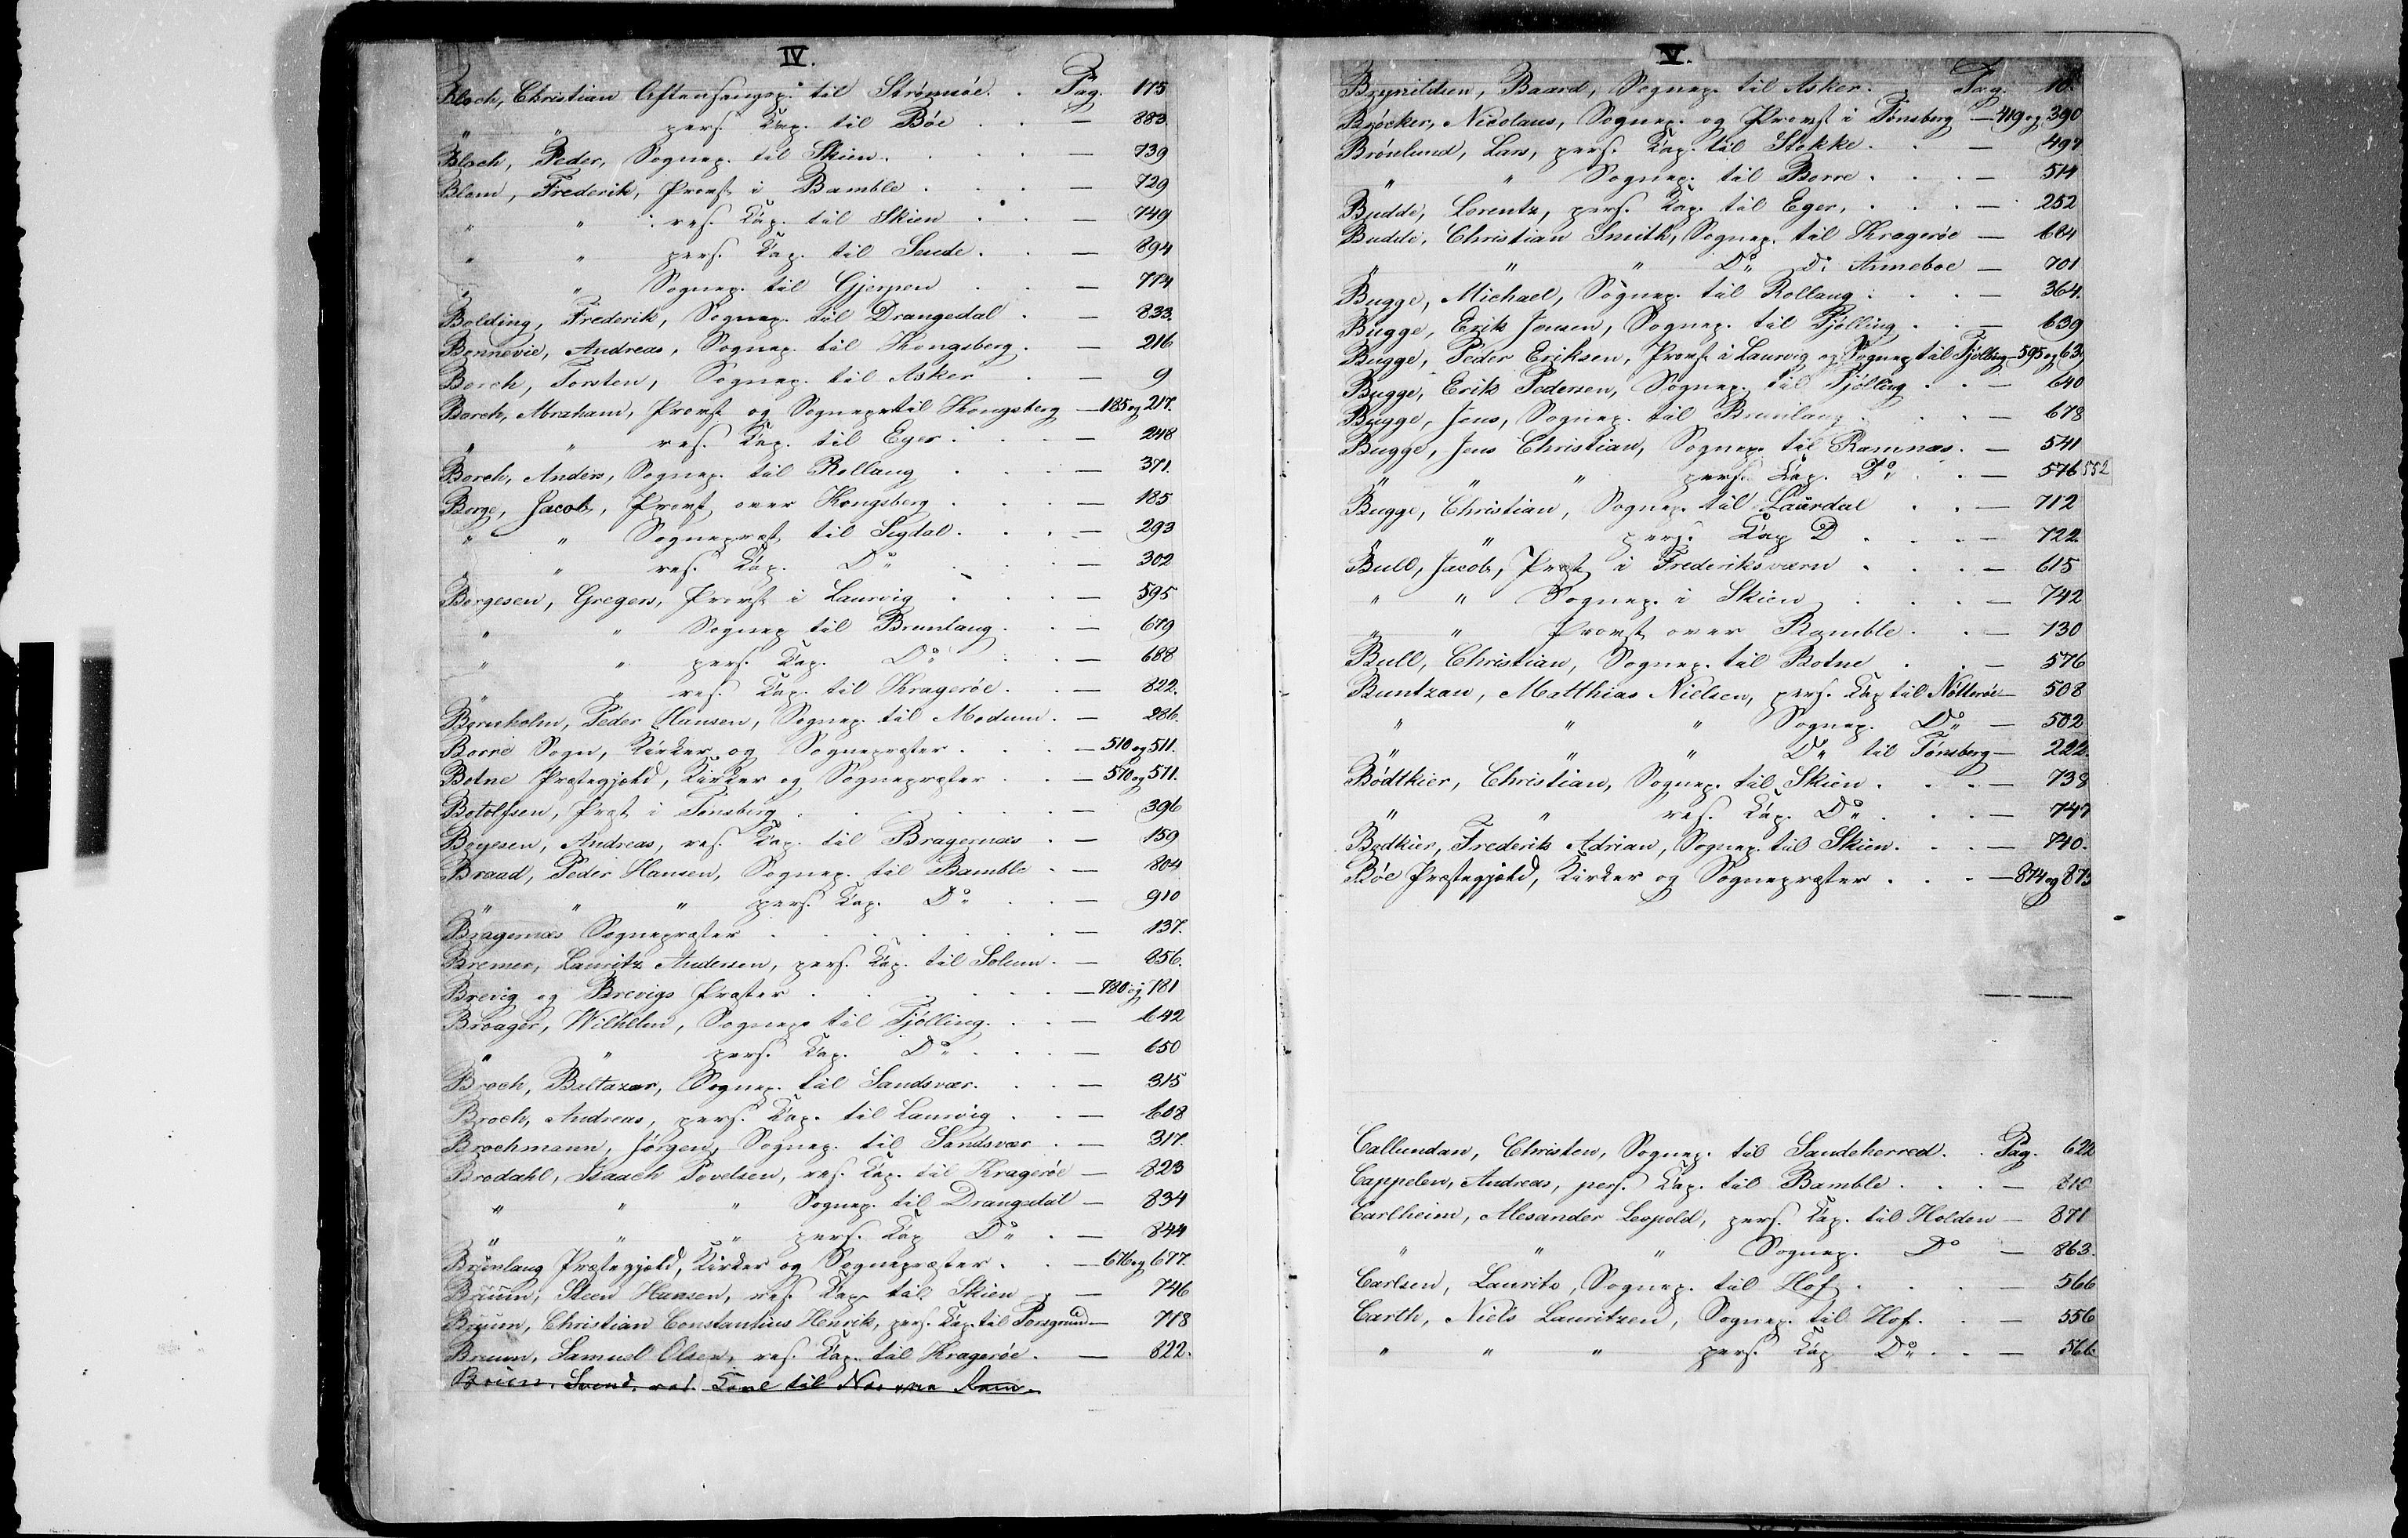 IV.
Bloch, Christian Aftensangsp. til Strømsøe. . Pag. 175
" " pers. Kap. til Bøe . . — 883.
Bloch, Peder, Sognep. til Skien. . . . — 739
Blom, Frederik, Provst i Bamble . . . — 729
" " res. Kap. til Skien . . — 749
" " pers. Kap. til Saude. . — 894
" " Sognep. til Gjerpen . . — 774
Bolding, Frederik, Sognep. til Drangedal . — 833.
Bonnevie, Andreas, Sognep. til Kongsberg. — 216
Borch, Torsten, Sognep. til Asker . — 9
Borch, Abraham, Provst og Sognep. til Kongsberg — 185 og 217.
" " res. Kap. til Eger . . . — 248
Borch, Anders, Sognep. til Rollaug . . . — 371.
Borge, Jacob, Provst over Kongsberg . . . — 185
" " Sognepræst til Sigdal. . . — 293
" " res. Kap. Do . . . — 302
Borgesen, Gregers, Provst i Laurvig . . . — 595
" " Sognep til Brunlaug. . — 679
" " pers. Kap. Do . . — 688
" " res. Kap. til Kragerøe. . — 822.
Bornholm, Peder Hansen, Sognep. til Modum. — 286.
Borre Sogn, Kirker og Sognepræster . . . — 510 og 511.
Botne Præstegjæld, Kirker og Sognepræster . . — 570 og 571.
Botolfsen, Præst i Tønsberg . . . . . — 396
Boyesen, Andreas, res. Kap. til Bragernæs . — 159
Braad, Peder Hansen, Sognep. til Bamble . — 804
" " " pers. Kap. Do . . — 910
Bragernæs Sognepræster . . . . . . — 137.
Bremer, Lauritz Andersen, pers. Kap. til Solum. — 856.
Brevig og Brevigs Præster . . . . . — 780 og 181
Broager, Wilhelm, Sognep. til Tjølling. . . — 642
" " pers. Kap. Do . . . — 650
Broch, Baltazar, Sognep. til Sandsvær. . . — 315
Broch, Andreas, pers. Kap. til Laurvig . . — 608
Brochmann, Jørgen, Sognep. til Sandsvær . — 317.
Brodahl, Isaach Povelsen, res. Kap. til Kragerøe — 823
" " " Sognep. til Drangedal — 834
" " " pers. Kap Do . — 844
Brunlaug Præstegjæld, Kirker og Sognepræster . . — 676 og 677.
Bruun, Steen Hansen, res. Kap. til Skien . — 746
Bruun, Christian Constantius Henrik, pers. Kap. til Porsgrund — 778
Bruun, Samuel Olsen, res. Kap. til Kragerøe . — 822.
Svend, res. til
V.
Brynildsen, Baard, Sognep. til Asker. . Pag. 10.
Brøcker, Nicolaus, Sognep. og Provst i Tønsberg — 419 og 390
Brønlund, Lars, pers. Kap. til Stokke. . — 497
" " Sognep. til Borre . . . — 514
Budde, Lorentz, pers. Kap. til Eger. . . . — 252
Budde, Christian Smith, Sognep. til Kragerøe — 684
" " " Do do Anneboe — 701
Bugge, Michael, Sognep. til Rollaug . . . — 364.
Bugge, Erik Jensen, Sognep. til Tjølling . . — 639
Bugge, Peder Eriksen, Provst i Laurvig og Sognep til Tjølling — 595 og 639
Bugge, Erik Pedersen, Sognep. til Tjølling . . — 640
Bugge, Jens, Sognep. til Brunlaug . . . — 678
Bugge, Jens Christian, Sognep. til Ramnæs. — 541
" " " pers. Kap. Do . . — 576 552
Bugge, Christian, Sognep. til Laurdal . . — 712
" " pers. Kap D . . . — 722.
Bull, Jacob, Præst i Frederiksværn . . . — 615
" " Sognep. i Skien . . . — 742
" " Provst over Bamble. . — 730
Bull, Christian, Sognep. til Botne . . — 576
Buntzau, Matthias Nielsen, pers. Kap til Nøtterøe — 508
" " " Sognep. Do — 502
" " " Do til Tønsberg — 222.
Bødtkier, Christian, Sognep. til Skien. . . — 738
" " res. Kap. Do . . — 747
Bødkier, Frederik Adrian, Sognep. til Skien. . . — 740.
Bøe Præstegjæld, Kirker og Sognepræster . . . — 874 og 875
Callundan, Christen, Sognep. til Sandeherred. . Pag. 622
Cappelen, Andreas, pers. Kap. til Bamble . . . — 810
Carlheim, Alexander Leopold, pers. Kap. til Holden — 871
" " " Sognep. Do — 863.
Carlsen, Laurits, Sognep. til Hof . . . — 566
Carth, Niels Lauritzen, Sognep. til Hof. . — 556
" " " pers. Kap Do . . — 566